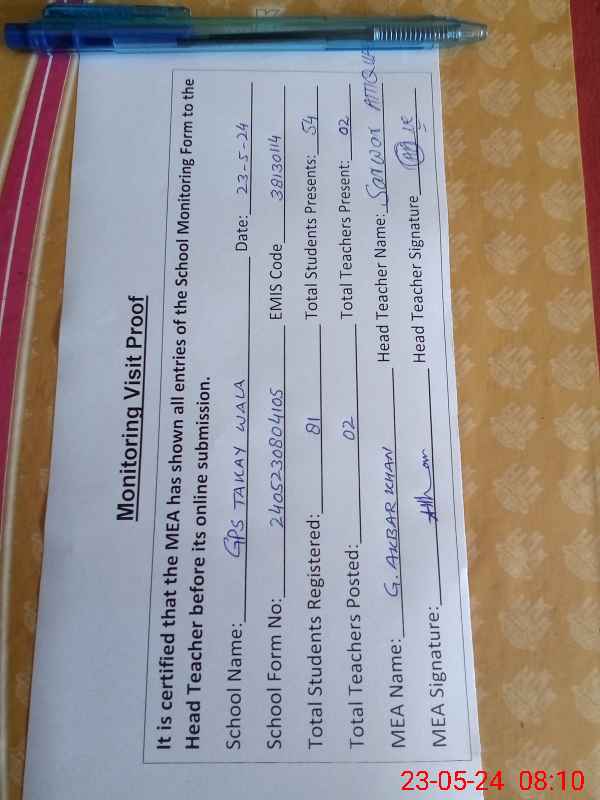 Monitoring Visit Proof
It is certified that the MEA has shown all entries of the School Monitoring Form to the
Head Teacher before its online submission.
School Name: GPS TAKAY WALA Date: 23-5-24
School Form No: 2405230804105 EMIS Code 38130114
Total Students Registered: 81 Total Students Presents: 54
Total Teachers Posted: 02 Total Teachers Present: 02
MEA Name: G. AKBAR KHAN Head Teacher Name: Sarwar
MEA Signature: Head Teacher Signature
23-05-24 08:10